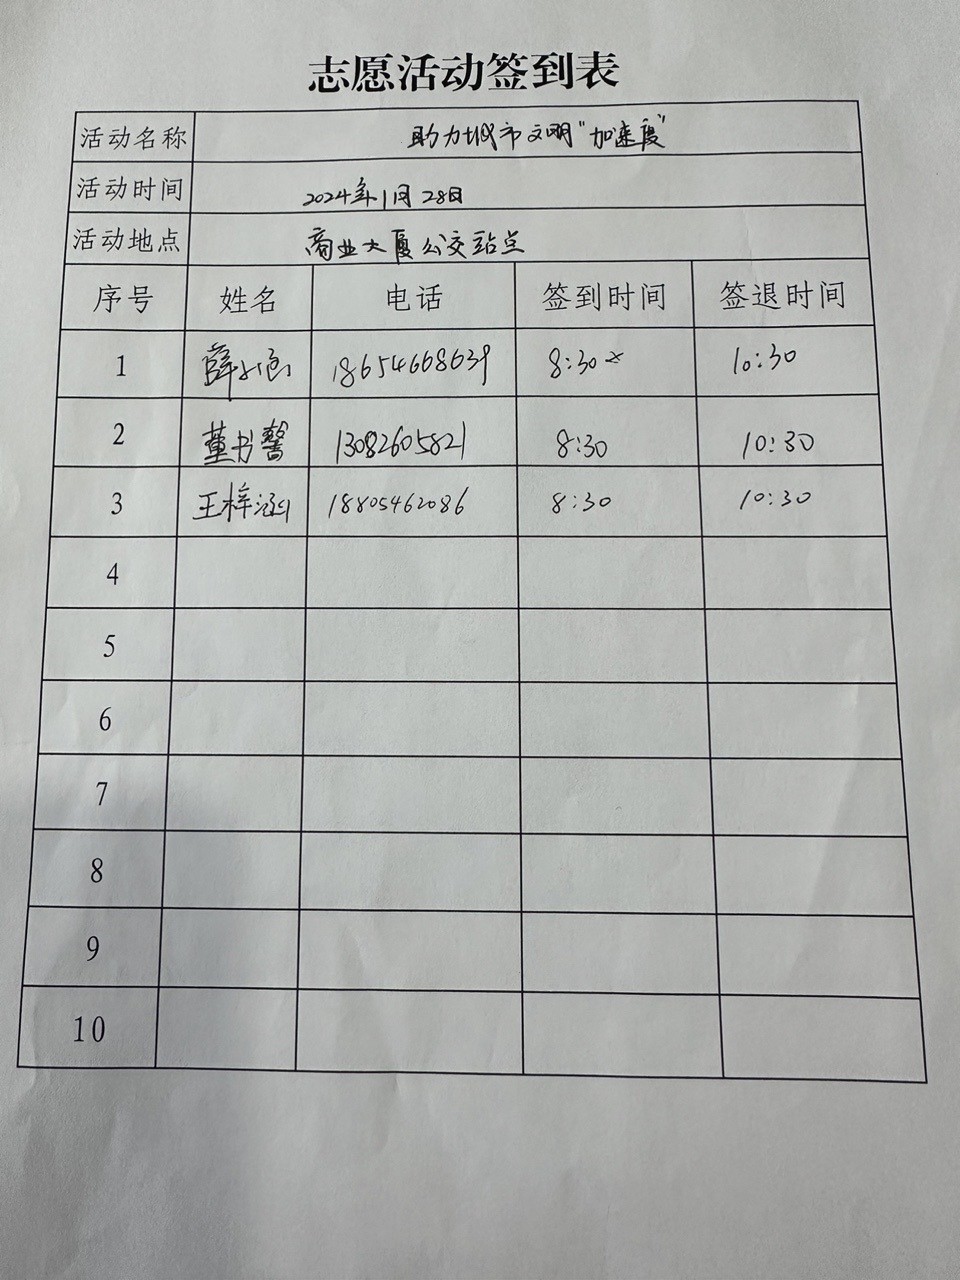 志愿活动签到表
活动名称 助力城市文明“加速度”
活动时间 2024年1月28日
活动地点 商业大厦公交站点
序号 姓名 电话 签到时间 签退时间
1 薛 18654668639 8:30 10:30
2 董书馨 13082605821 8:30 10:30
3 王梓涵 18805462086 8:30 10:30
4
5
6
7
8
9
10